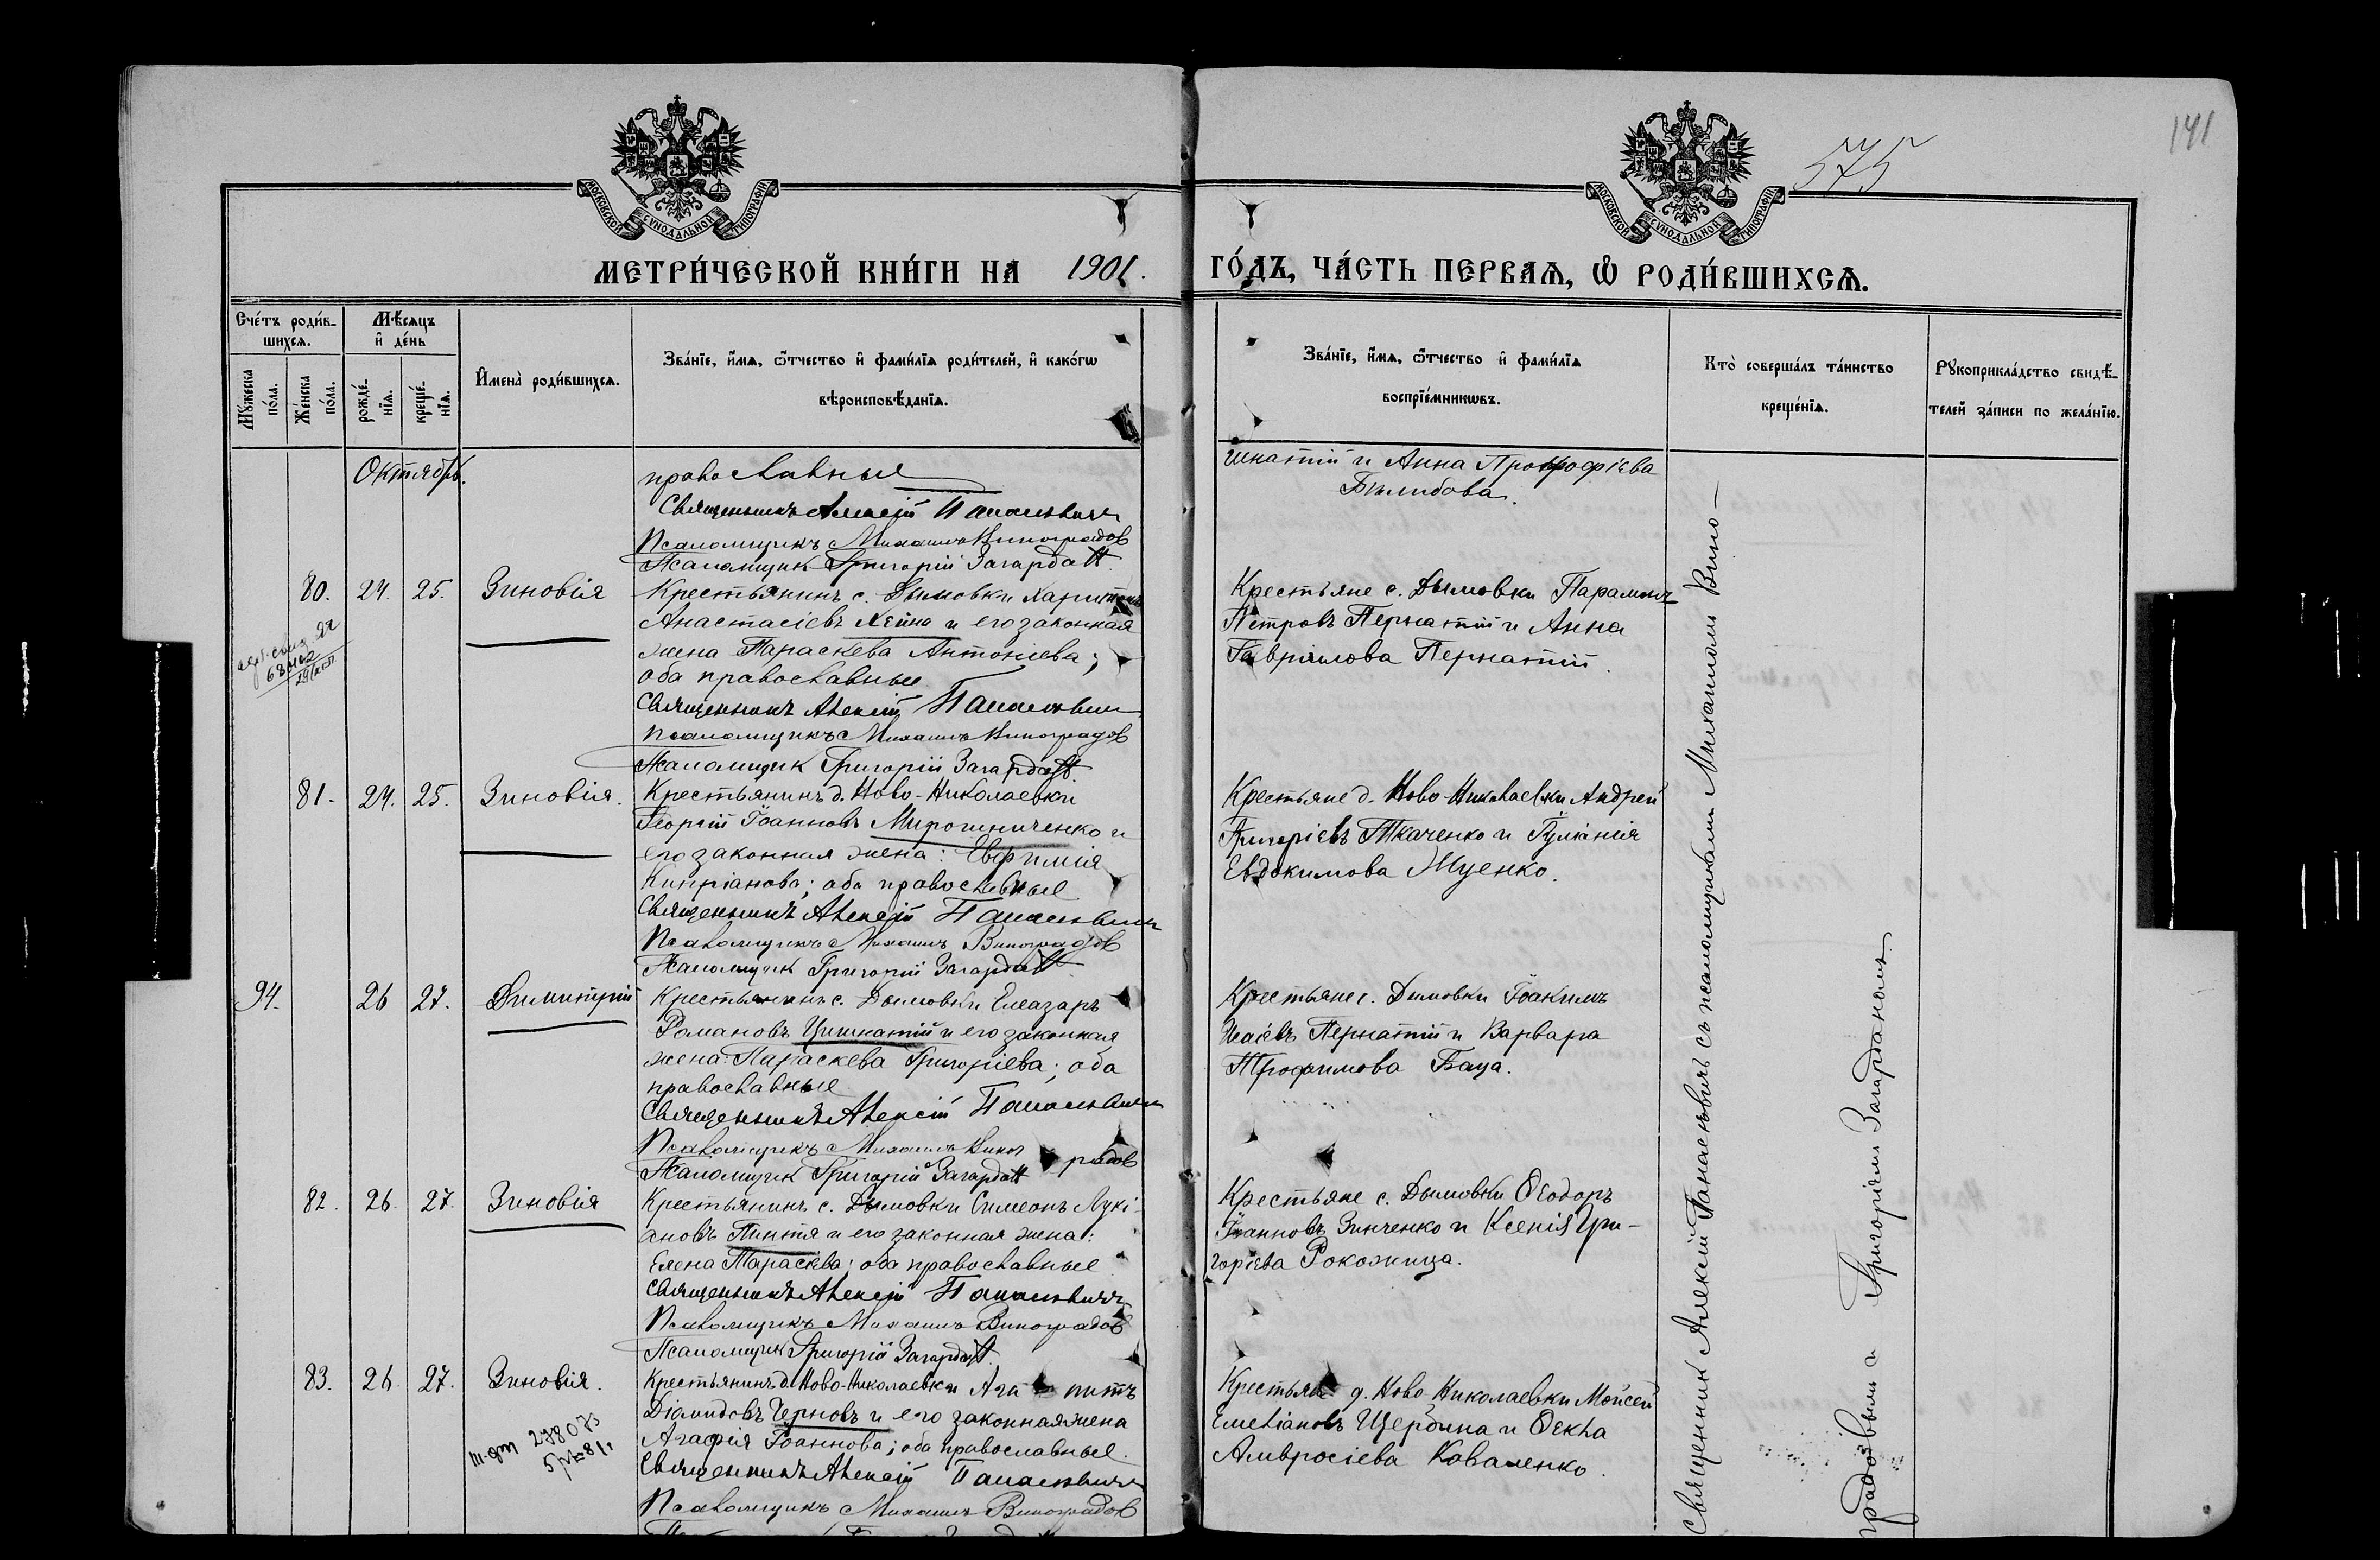 141
575
МОСКОВСКОЙ СѴНОДАЛЬНОЙ ТИПОГРАФІИ
МОСКОВСКОЙ СѴНОДАЛЬНОЙ ТИПОГРАФІИ
МЕТРИ́ЧЕСКОЙ КНИ́ГИ НА 1901. ГО́ДЪ, ЧА́СТЬ ПЕРВАѦ, Ѽ РОДИ́ВШИХСѦ.
Сче́тъ роди́в-
шихсѧ.
Мꙋ́жеска
по́ла.
Же́нска
по́ла.
Мѣ́сѧцъ
и҆ де́нь
рожде́-
нїѧ.
креще́-
нїѧ.
И҆мена̀ роди́вшихсѧ.
Зва́нїе, и҆́мѧ, ѻ҆́тчество и҆ фами́лїѧ роди́телей, и҆ како́гѡ
вѣроисповѣ́данїѧ.
Зва́нїе, и҆́мѧ, ѻ҆́тчество и҆ фами́лїѧ
воспрїе́мникѡвъ.
Кто̀ соверша́лъ та́инство
креще́нїѧ.
Рꙋкоприкла́дство свидѣ́-
телей за́писи по жела́нїю.
Октябрь.
православные
Священникъ Алексій Панасьевичъ
Псаломщикъ Михаилъ Виноградов
Псаломщик Григорій Загарда
шнатій и Анна Прокофіева
80. 24. 25. Зиновія
Крестьянинъ с. Дымовки Харитонъ
Анастасіевъ Хейна и его законная
жена Параскева Антоніева;
оба православные
Священникъ Алексій Панасьевич
Псаломщикъ Михаилъ Виноградов
Псаломщик Григорій Загарда
Крестьяне с. Дымовки Парамонъ
Петровъ Пернатій и Анна
Гаврилова Пернатій.
81. 24. 25. Зиновія.
Крестьянинъ д. Ново-Николаевки
Георгій Іоанновъ Мирошниченко и
его законная жена: Евфимія
Кипріанова; оба православные
Священникъ Алексій Панасьевич
Псаломщикъ Михаилъ Виноградов
Псаломщик Григорій Загарда
Крестьяне д. Ново-Николаевки Андрей
Григоріевъ Ткаченко и Іуліанія
Евдокимова Муенко.
94. 26 27. Димитрій
Крестьянинъ с. Дымовки Елеазаръ
Романовъ Цишнатій и его законная
жена: Параскева Григоріева; оба
православные
Священникъ Алексій Панасьевич
Псаломщикъ Михаилъ Виноградов
Псаломщик Григорій Загарда
Крестьяне с. Дымовки Іоакимъ
Исаіевъ Пернатій и Варвара
Трофимова Баца.
82. 26. 27. Зиновія
Крестьянинъ с. Дымовки Симеонъ Лукі-
ановъ Пинтя и его законная жена:
Елена Тарасіева; оба православные
Священникъ Алексій Панасьевич
Псаломщикъ Михаилъ Виноградов
Псаломщик Григорій Загарда
Крестьяне с. Дымовки Ѳеодоръ
Іоанновъ Зинченко и Ксенія Гри-
горіева Рокожица.
83. 26. 27. Зиновія.
Крестьянинъ д. Ново-Николаевки Агапитъ
Діомидовъ Черновъ и его законная жена
Агафія Іоаннова; оба православные.
Священникъ Алексій Панасьевич
Псаломщикъ Михаилъ Виноградов
278073
Крестьяне д. Ново-Николаевки Моисей
Емеліановъ Щербина и Ѳекла
Амвросіева Коваленко.
Священник Алексій Панасьевичъ съ псаломщиками Михаиломъ Вино-
градовымъ и Григоріемъ Загарданомъ